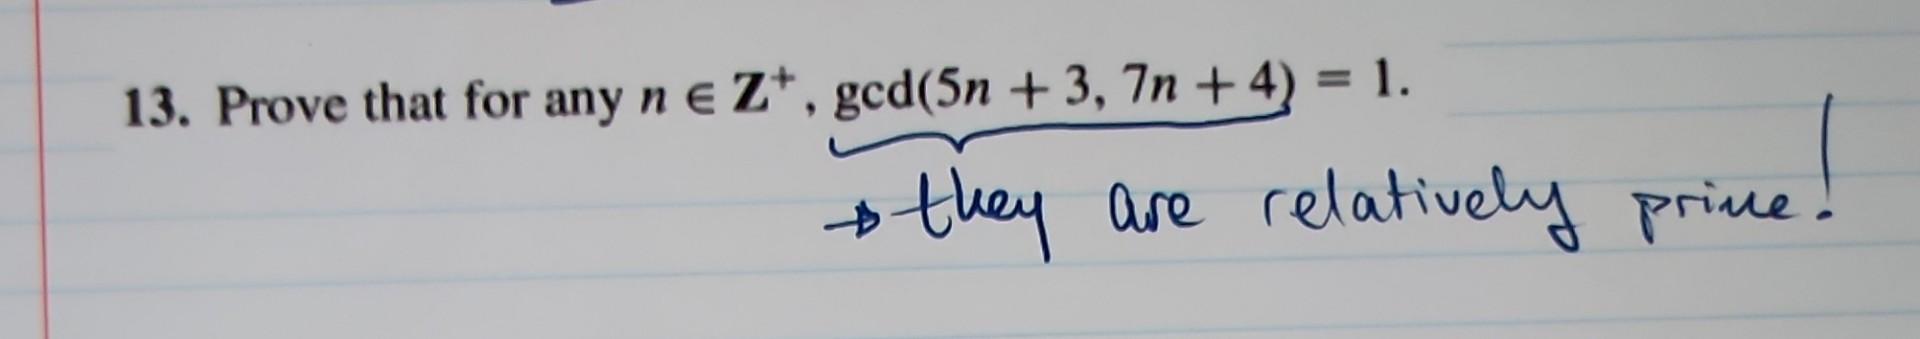 13. Prove that for any n ∈ Z⁺, gcd(5n + 3, 7n + 4) = 1.
→ they are relatively prime!